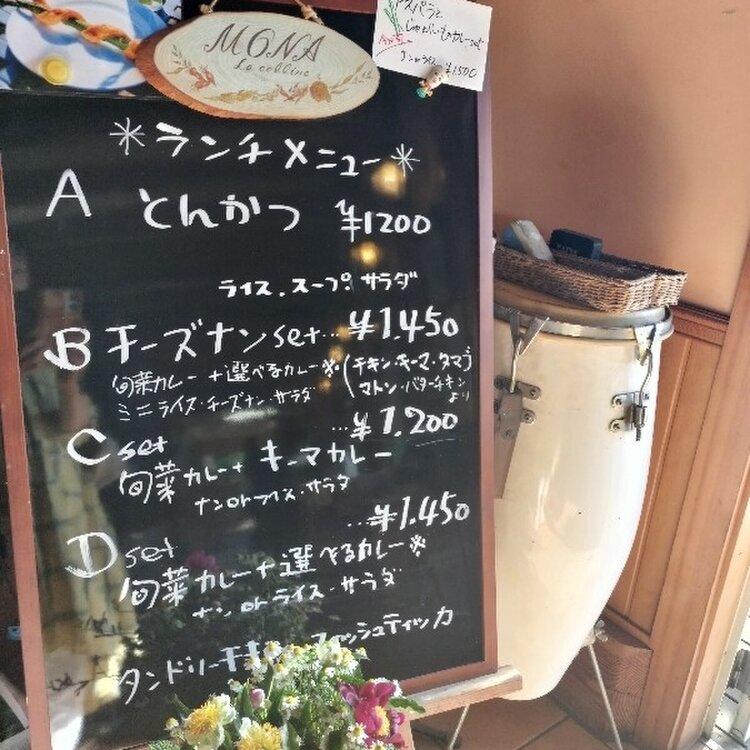 MONA
La colline
アスパラと
じゃがいものカレーset
¥1,500
*ランチメニュー*
A とんかつ ¥1200
ライス.スープ.サラダ
B チーズナンset... ¥1.450
旬菜カレー+選べるカレー※(チキン・キーマ・タマゴ
マトン・バターチキン
より
ミニライス・チーズナン・サラダ
C set ...¥1,200
旬菜カレー+キーマカレー
ナンorライス・サラダ
D set ...¥1.450
旬菜カレー+選べるカレー※
ナンorライス・サラダ
タンドリーチキン フィッシュティッカ